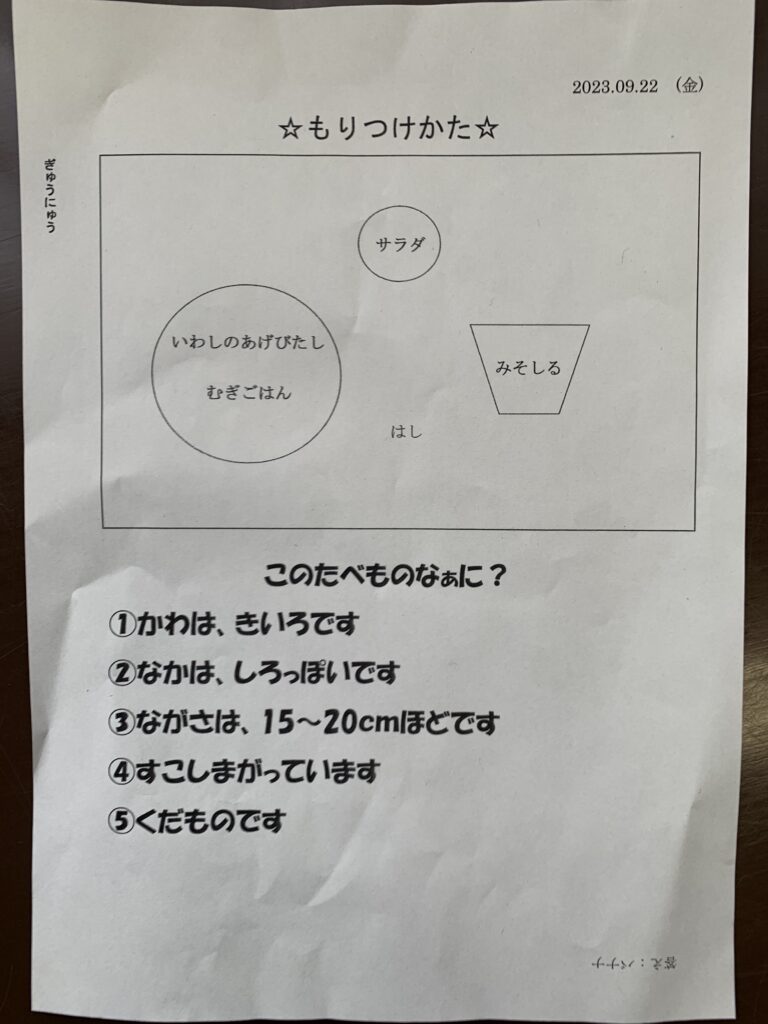 2023.09.22 （金）
☆もりつけかた☆
ぎゅうにゅう
サラダ
いわしのあげびたし
むぎごはん
みそしる
はし
このたべものなぁに？
①かわは、きいろです
②なかは、しろっぽいです
③ながさは、15～20cmほどです
④すこしまがっています
⑤くだものです
答え：バナナ